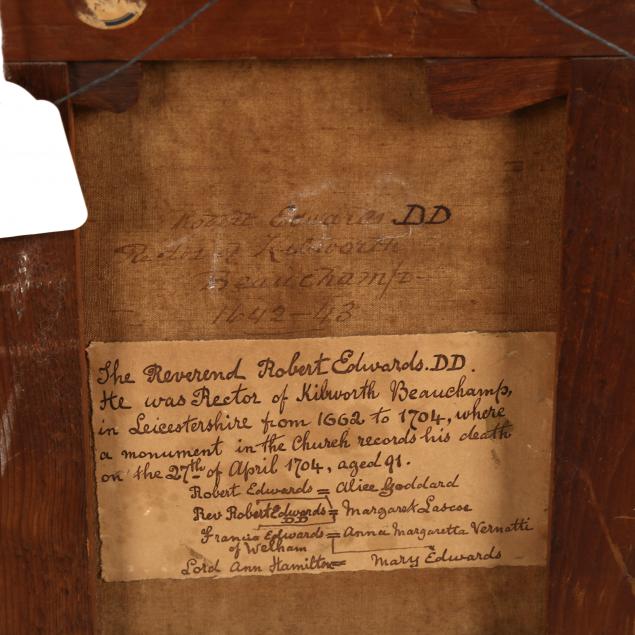 Robert Edwards DD
Rector of Kibworth
Beauchamp
1642-43
The Reverend Robert Edwards. DD.
He was Rector of Kibworth Beauchamp,
in Leicestershire from 1662 to 1704, where
a monument in the Church records his death
on the 27th of April 1704, aged 91.
Robert Edwards = Alice Goddard
Rev Robert Edwards = Margaret Lascoe
DD
Francis Edwards = Anna Margaretta Vernatti
of Welham
Lord Ann Hamilton = Mary Edwards